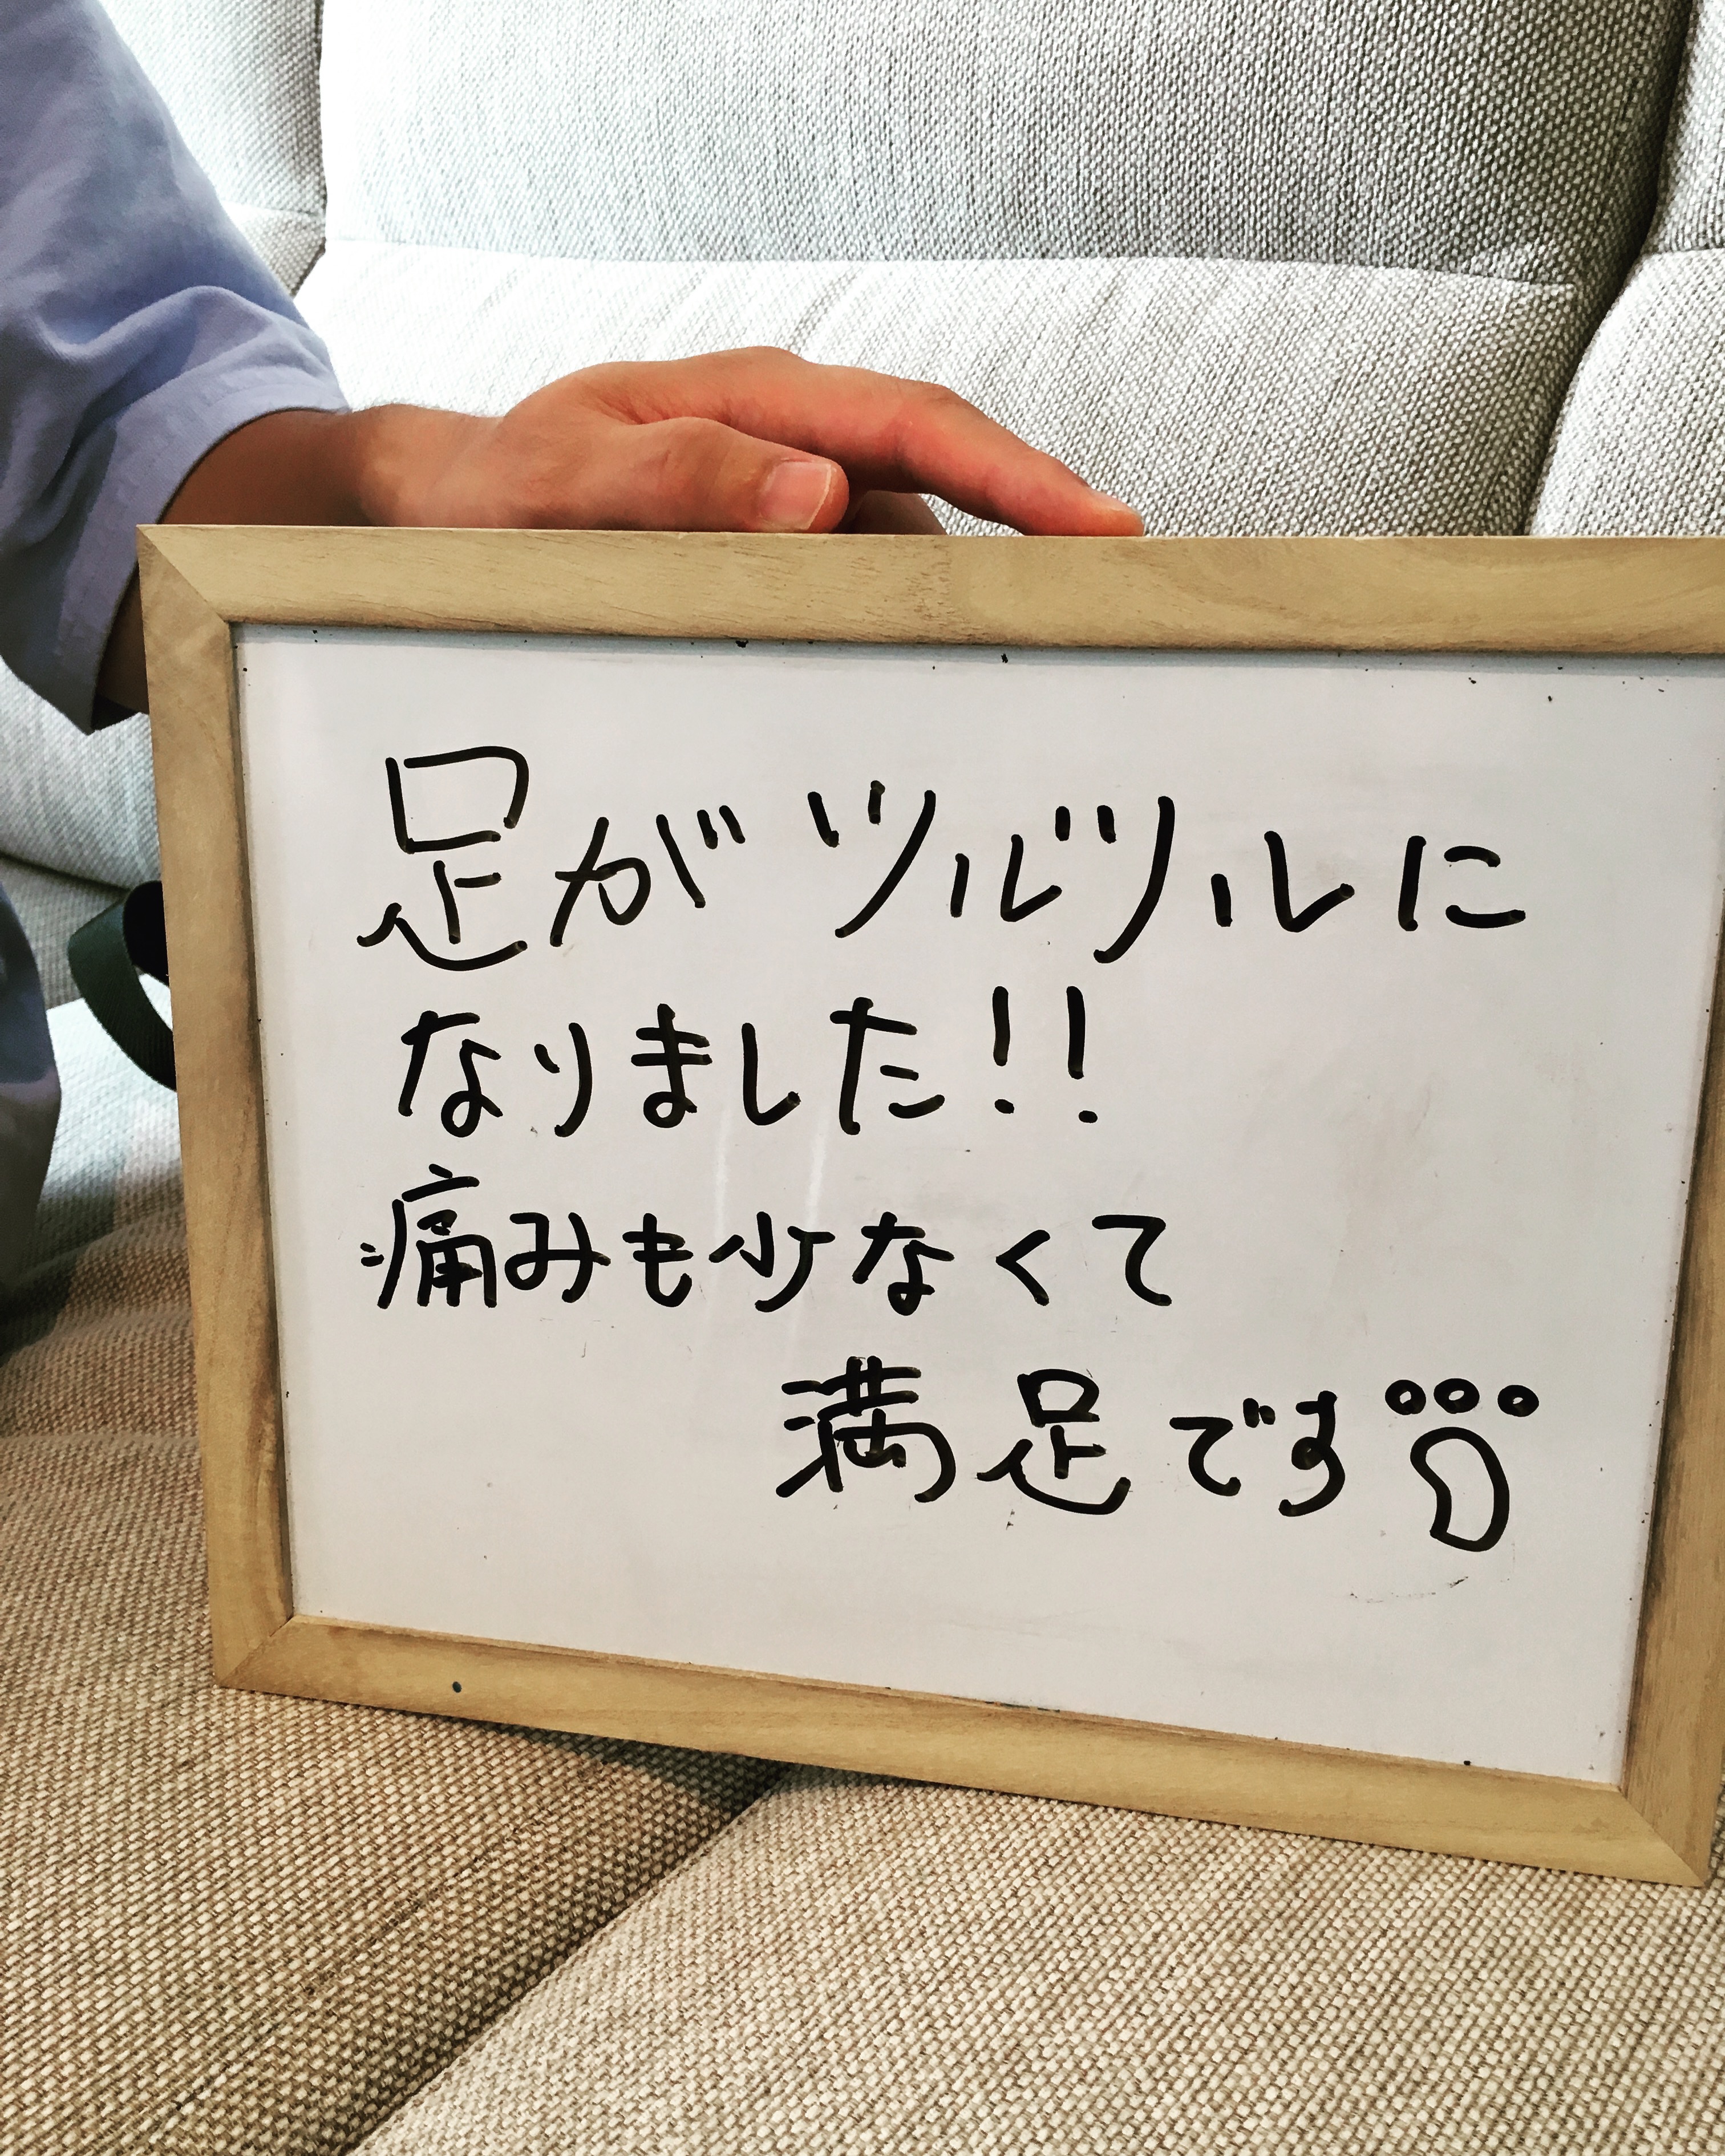 足がツルツルに
なりました!!
痛みも少なくて
満足です